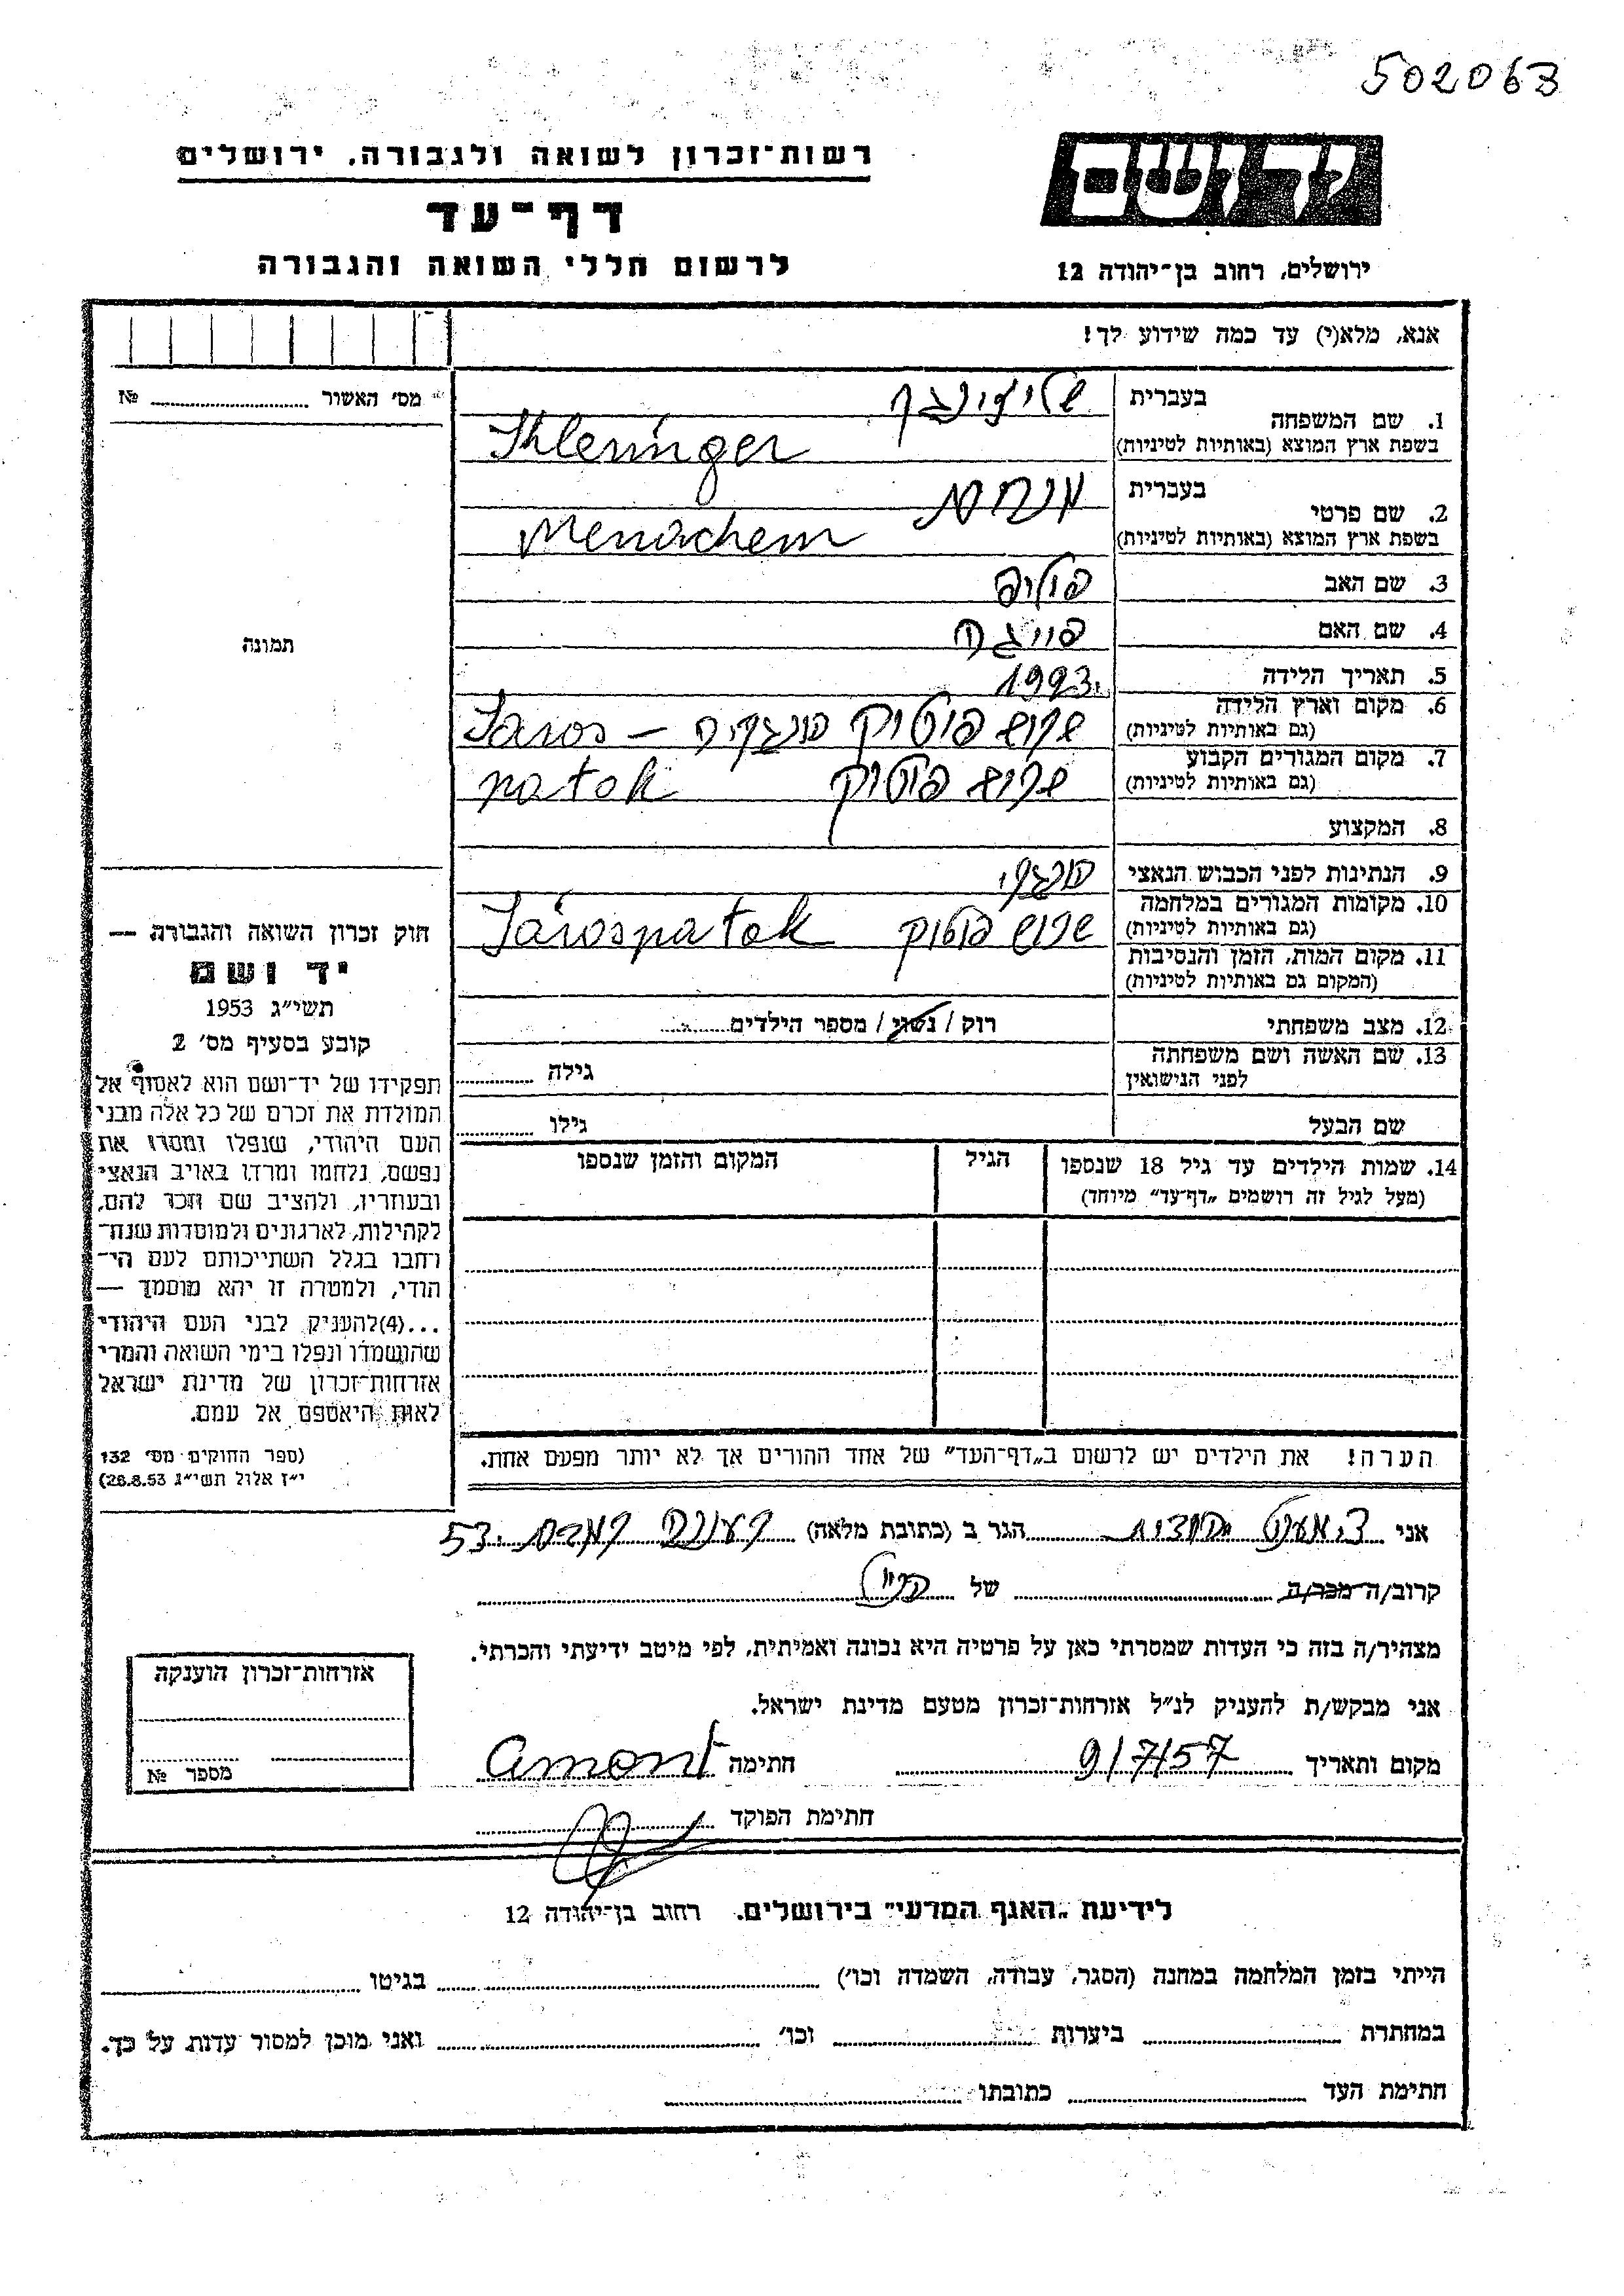 502063
יד ושם
רשות־זכרון לשואה ולגבורה, ירושלים
דף־עד
לרשום חללי השואה והגבורה
ירושלים, רחוב בן־יהודה 12
אנא, מלא(י) עד כמה שידוע לך!
מס' האשור № 
1. שם המשפחה
בעברית
בשפת ארץ המוצא (באותיות לטיניות)
2. שם פרטי
בעברית מנחם
בשפת ארץ המוצא (באותיות לטיניות) Menachem
3. שם האב פיליפ
4. שם האם פייגה
5. תאריך הלידה 1923.
6. מקום וארץ הלידה
(גם באותיות לטיניות) שרוש פוטוק הונגריה – Saros
7. מקום המגורים הקבוע
(גם באותיות לטיניות) שרוש פוטוק patok
8. המקצוע
9. הנתינות לפני הכבוש הנאצי הונגרי
10. מקומות המגורים במלחמה
(גם באותיות לטיניות) שרוש פוטוק Sárospatok
11. מקום המות, הזמן והנסיבות
(המקום גם באותיות לטיניות)
12. מצב משפחתי רוק / נשוי / מספר הילדים
13. שם האשה ושם משפחתה
לפני הנישואין גילה
שם הבעל גילו
14. שמות הילדים עד גיל 18 שנספו
(מעל לגיל זה רושמים „דף־עד” מיוחד)
הגיל
המקום והזמן שנספו
הערה! את הילדים יש לרשום ב„דף־העד” של אחד ההורים אך לא יותר מפעם אחת.
תמונה
חוק זכרון השואה והגבורה —
יד ושם
תשי״ג 1953
קובע בסעיף מס' 2
תפקידו של יד־ושם הוא לאסוף אל
המולדת את זכרם של כל אלה מבני
העם היהודי, שנפלו ומסרו את
נפשם, נלחמו ומרדו באויב הנאצי
ובעוזריו, ולהציב שם וזכר להם,
לקהילות, לארגונים ולמוסדות שנח־
רחבו בגלל השתייכותם לעם הי־
הודי, ולמטרה זו יהא מוסמך —
...(4)להעניק לבני העם היהודי
שהושמדו ונפלו בימי השואה והמרי
אזרחות־זכרון של מדינת ישראל
לאות היאספם אל עמם.
(ספר החוקים מס' 132
י״ז אלול תשי״ג 28.8.53)
אני הגר ב (כתובת מלאה) 53.
קרוב/ה מכר/ה של
מצהיר/ה בזה כי העדות שמסרתי כאן על פרטיה היא נכונה ואמיתית, לפי מיטב ידיעתי והכרתי.
אני מבקש/ת להעניק לנ״ל אזרחות־זכרון מטעם מדינת ישראל.
מקום ותאריך 9/7/57 חתימה amont
חתימת הפוקד
אזרחות־זכרון הוענקה
מספר №
לידיעת „האגף המדעי” בירושלים. רחוב בן־יהודה 12
הייתי בזמן המלחמה במחנה (הסגר, עבודה, השמדה וכו') בגיטו
במחתרת ביערות וכו' ואני מוכן למסור עדות על כך.
חתימת העד כתובתו